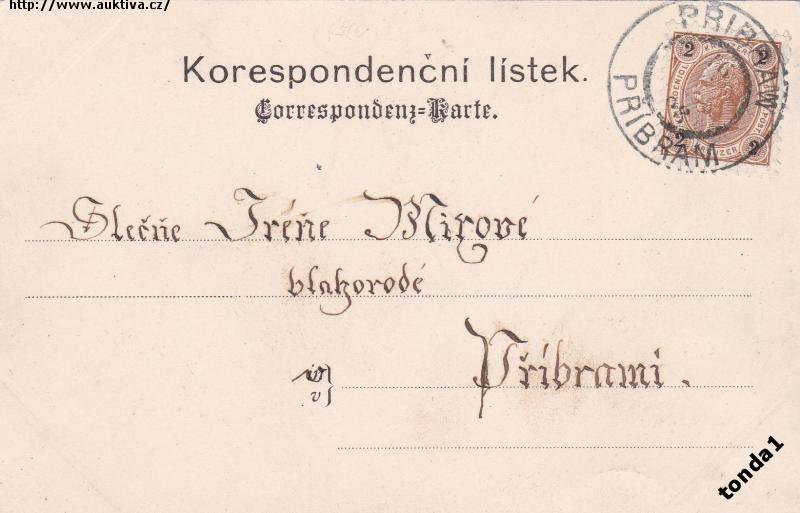 http://www.auktiva.cz/
Korespondenční lístek.
Correspondenz-Karte.
PŘIBRAM
PŘÍBRAM
2 KREUZER 2
POST
2 KREUZER 2
Slečňe Iréňe Mixové
blahorodé
v
Příbrami.
tonda1